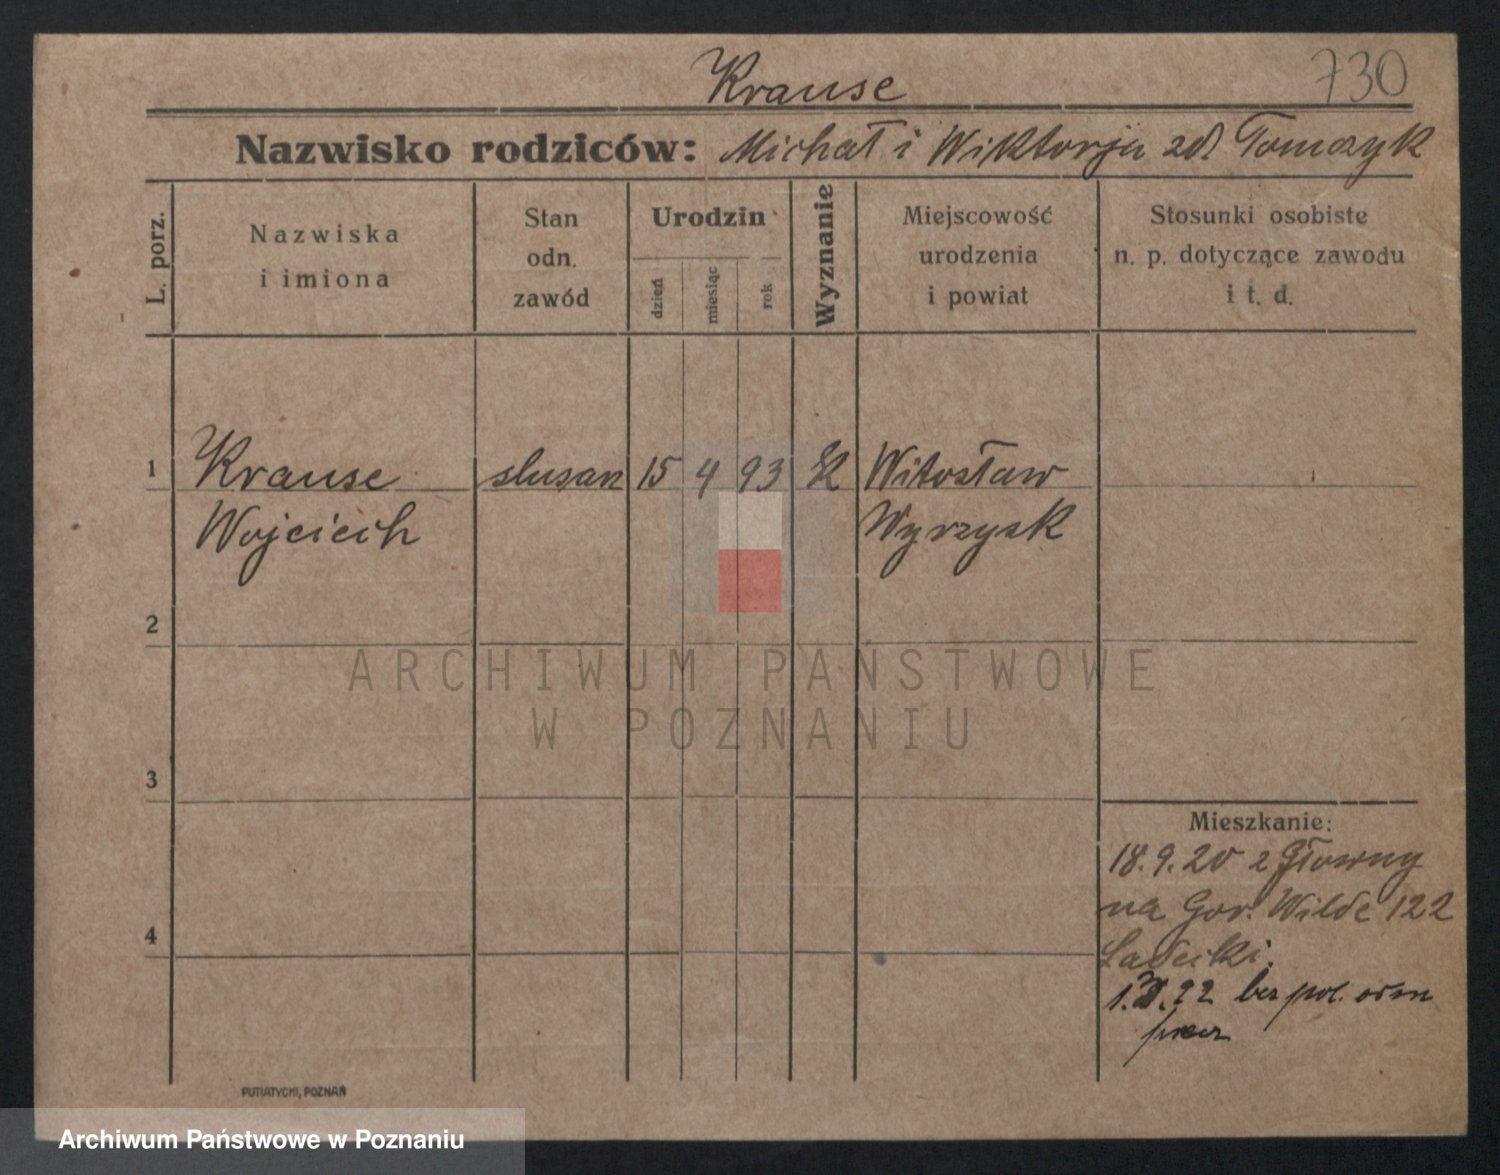 Krause
730
Nazwisko rodziców: Michał i Wiktorja zd Tomczyk
L. porz.
Nazwiska
i imiona
Stan
odn.
zawód
Urodzin
dzień
miesiąc
rok
Wyznanie
Miejscowość
urodzenia
i powiat
Stosunki osobiste
n. p. dotyczące zawodu
i t. d.
1 Krause slusarz 15 4 93 K Witosław
Wojciech Wyrzysk
2
3
4
ARCHIWUM PAŃSTWOWE
W POZNANIU
Mieszkanie:
18.9.20 z Główny
na Gór. Wilde 122
1. 22 bez pol. odm
PUTIATYCKI, POZNAŃ
Archiwum Państwowe w Poznaniu